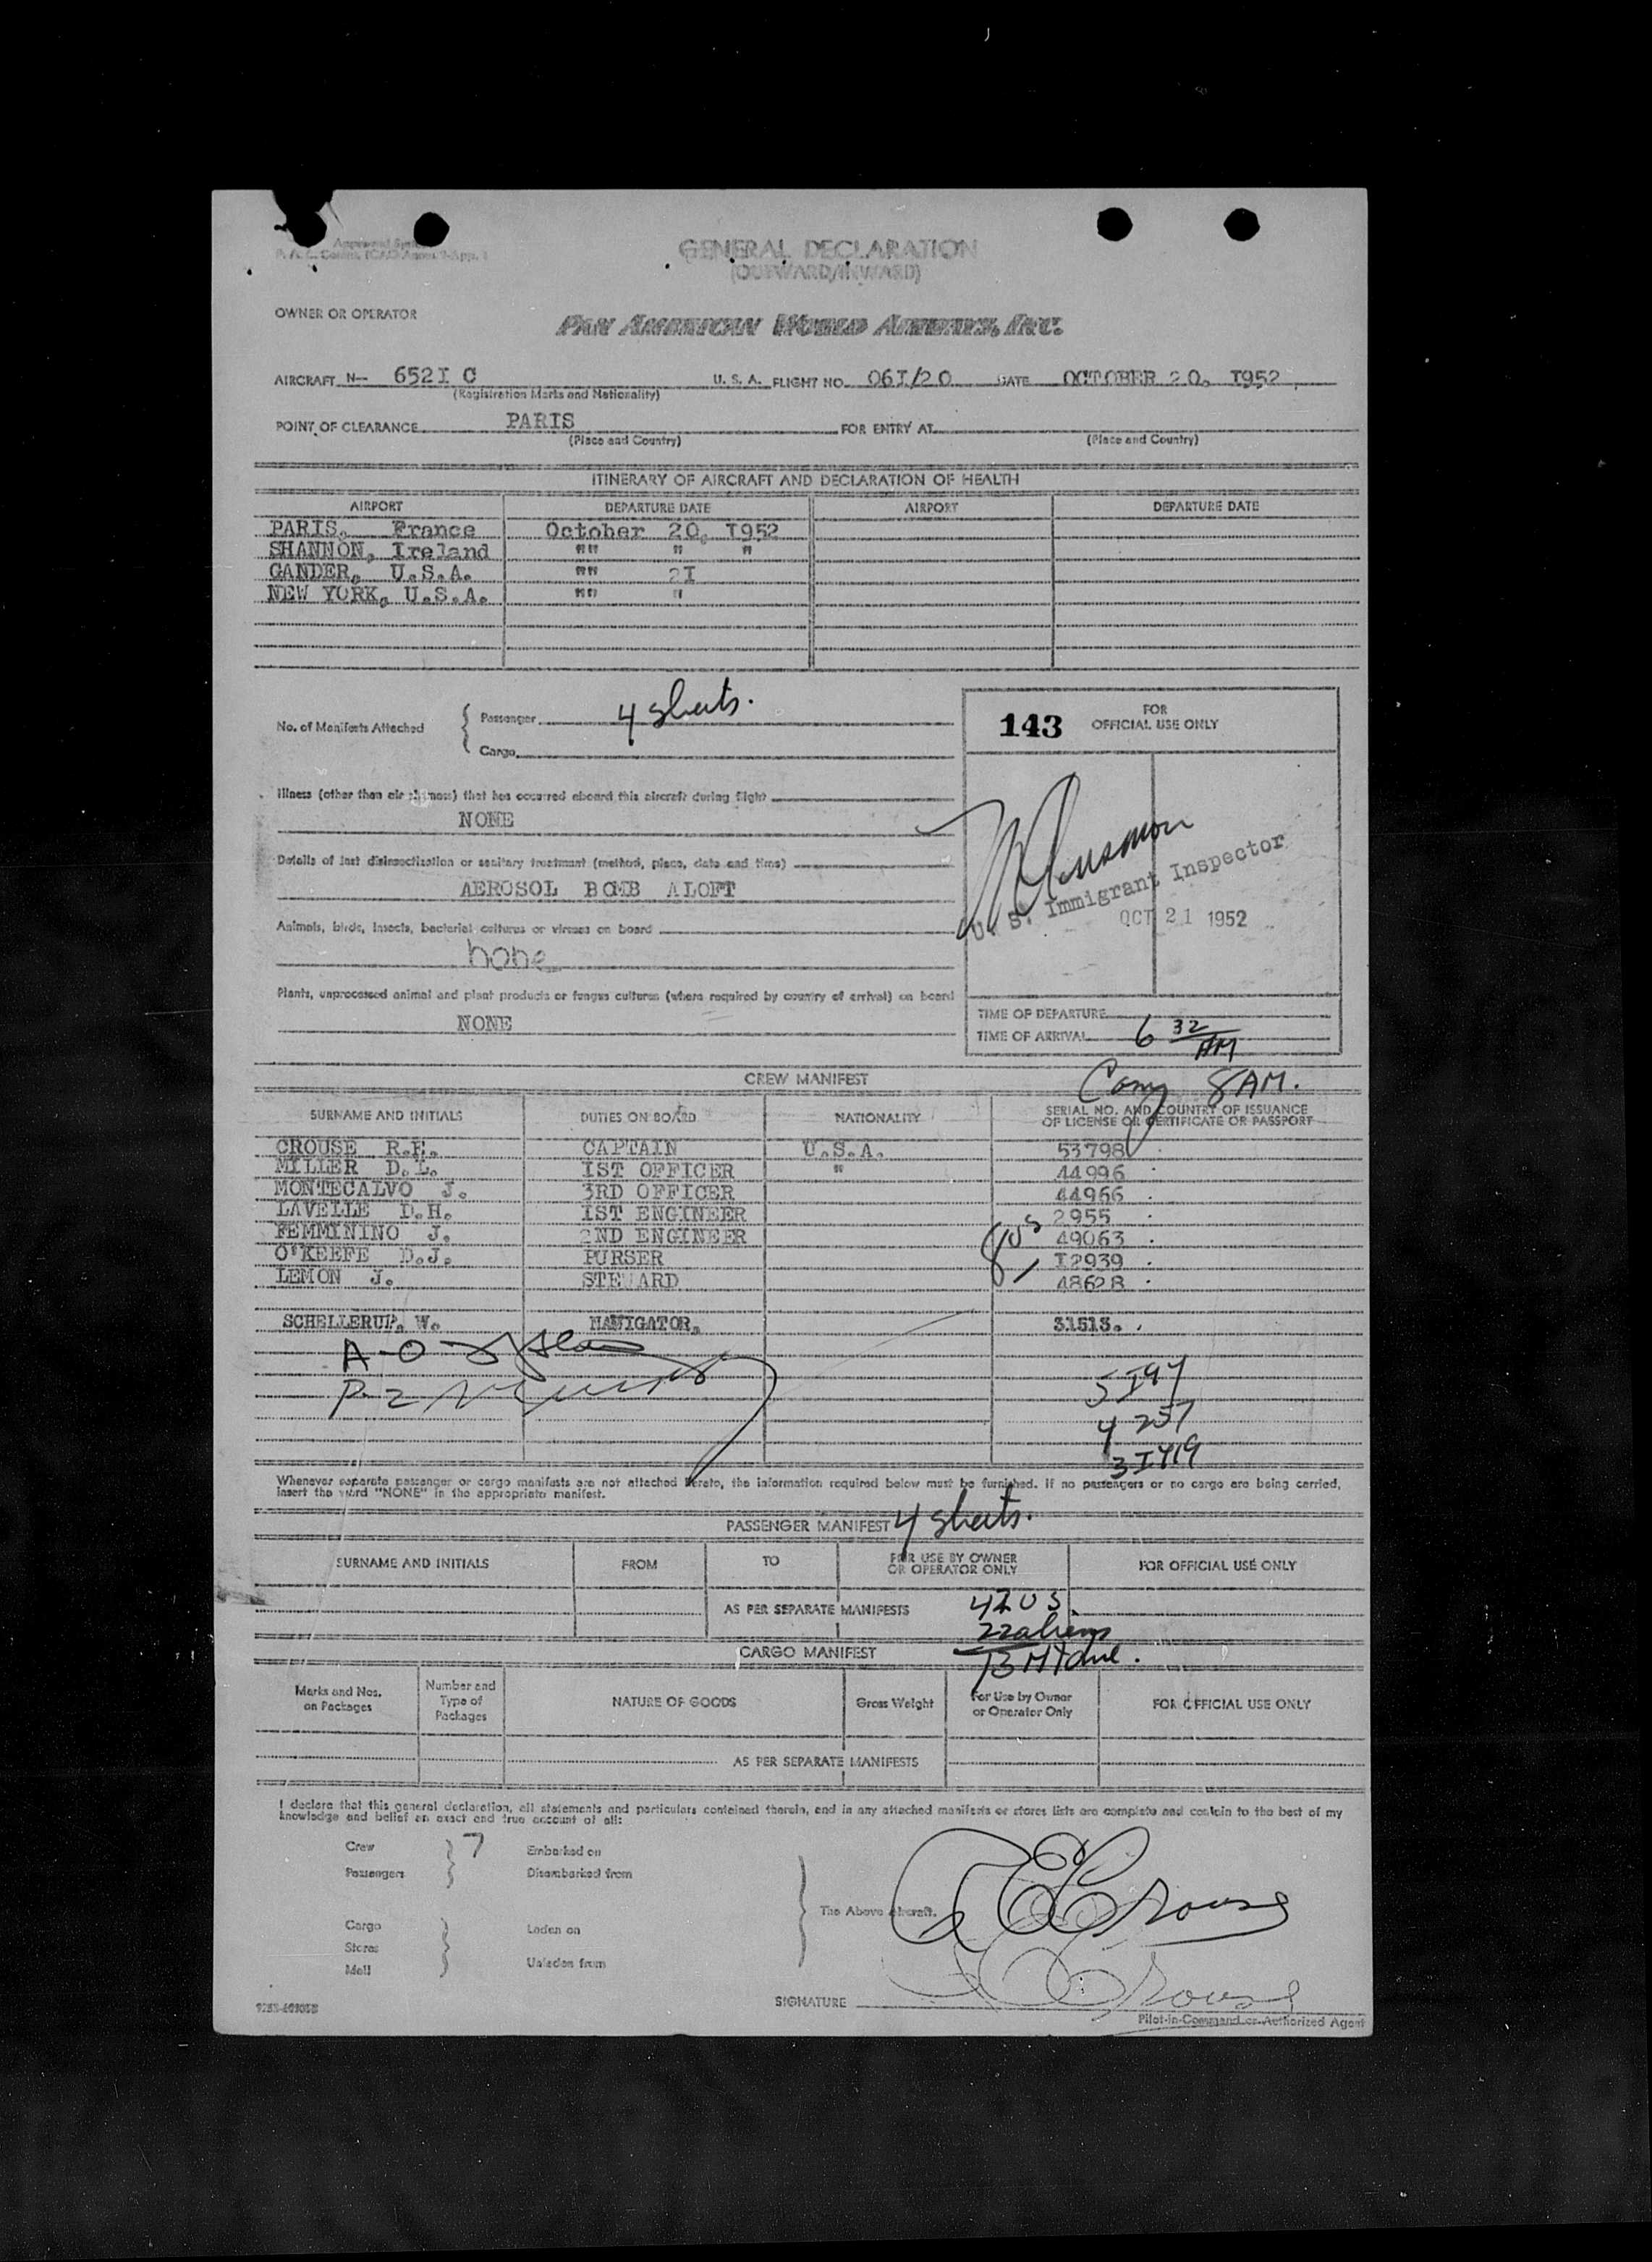 GENERAL DECLARATION
(OUTWARD/INWARD)
OWNER OR OPERATOR
PAN AMERICAN WORLD AIRWAYS, INC.
AIRCRAFT N-- 652I C U. S. A. FLIGHT NO. 06I/20 DATE OCTOBER 20. I952
(Registration Marks and Nationality)
POINT OF CLEARANCE PARIS FOR ENTRY AT
(Place and Country) (Place and Country)
ITINERARY OF AIRCRAFT AND DECLARATION OF HEALTH
AIRPORT DEPARTURE DATE AIRPORT DEPARTURE DATE
PARIS, France October 20, I952
SHANNON, Ireland "" " "
GANDER, U.S.A. "" 2I
NEW YORK, U.S.A. "" "
No. of Manifests Attached
Passenger 4 sheets.
Cargo
143 FOR
OFFICIAL USE ONLY
Illness (other than air sickness) that has occurred aboard this aircraft during flight
NONE
Details of last disinsectization or sanitary treatment (method, place, date and time)
AEROSOL BOMB ALOFT
U. S. Immigrant Inspector
OCT 21 1952
Animals, birds, insects, bacterial cultures or viruses on board
none
Plants, unprocessed animal and plant products or fungus cultures (where required by country of arrival) on board
NONE
TIME OF DEPARTURE
TIME OF ARRIVAL 6 32 AM
8 AM.
CREW MANIFEST
SURNAME AND INITIALS DUTIES ON BOARD NATIONALITY SERIAL NO. AND COUNTRY OF ISSUANCE
OF LICENSE OR CERTIFICATE OR PASSPORT
CROUSE R.E. CAPTAIN U.S.A. 53798
MILLER D.L. IST OFFICER " 44996
MONTECALVO J. 3RD OFFICER 44966
LAVELLE D.H. IST ENGINEER 2955
FEMMININO J. 2ND ENGINEER 49063
O'KEEFE D.J. PURSER I2939
LEMON J. STEWARD 48628
8 US
SCHELLERUP, W. NAVIGATOR. 31513.
A-O
P-2
4 257
Whenever separate passenger or cargo manifests are not attached hereto, the information required below must be furnished. If no passengers or no cargo are being carried,
insert the word "NONE" in the appropriate manifest.
PASSENGER MANIFEST 4 sheets.
SURNAME AND INITIALS FROM TO FOR USE BY OWNER
OR OPERATOR ONLY FOR OFFICIAL USE ONLY
AS PER SEPARATE MANIFESTS
US.
22 aliens
CARGO MANIFEST
Marks and Nos.
on Packages Number and
Type of
Packages NATURE OF GOODS Gross Weight For Use by Owner
or Operator Only FOR OFFICIAL USE ONLY
AS PER SEPARATE MANIFESTS
I declare that this general declaration, all statements and particulars contained therein, and in any attached manifests or stores lists are complete and contain to the best of my
knowledge and belief an exact and true account of all:
Crew 7 Embarked on
Passengers Disembarked from
The Above Aircraft.
Cargo Laden on
Stores
Mail Unladen from
R E Crouse
R E Crouse
SIGNATURE
Pilot-in-Command or Authorized Agent